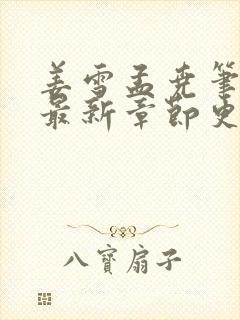 姜雪孟尧笔
最新章節史
八寶扇子